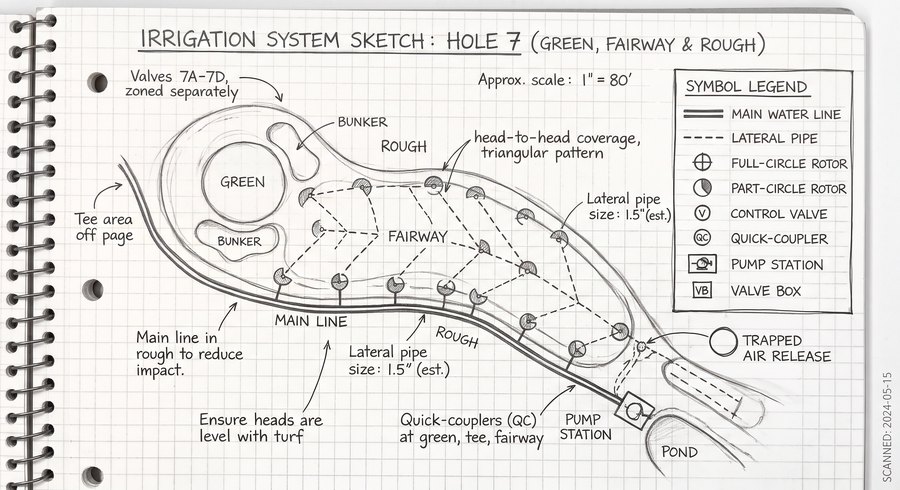 IRRIGATION SYSTEM SKETCH: HOLE 7 (GREEN, FAIRWAY & ROUGH)
Valves 7A-7D,
zoned separately
Approx. scale: 1" = 80'
SYMBOL LEGEND
MAIN WATER LINE
LATERAL PIPE
FULL-CIRCLE ROTOR
PART-CIRCLE ROTOR
V CONTROL VALVE
QC QUICK-COUPLER
PUMP STATION
VB VALVE BOX
BUNKER
ROUGH
head-to-head coverage,
triangular pattern
GREEN
Lateral pipe
size: 1.5"(est.)
Tee area
off page
BUNKER
FAIRWAY
MAIN LINE
ROUGH
Main line in
rough to reduce
impact.
Lateral pipe
size: 1.5" (est.)
TRAPPED
AIR RELEASE
Ensure heads are
level with turf
Quick-couplers (QC)
at green, tee, fairway
PUMP
STATION
POND
SCANNED: 2024-05-15